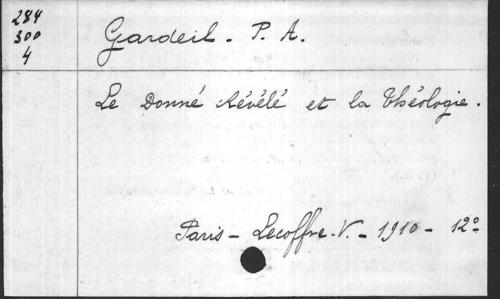 284
300
4
Gardeil - P. A.
Le Donné révélé et la Théologie.
Paris - Lecoffre. V. - 1910 - 12º